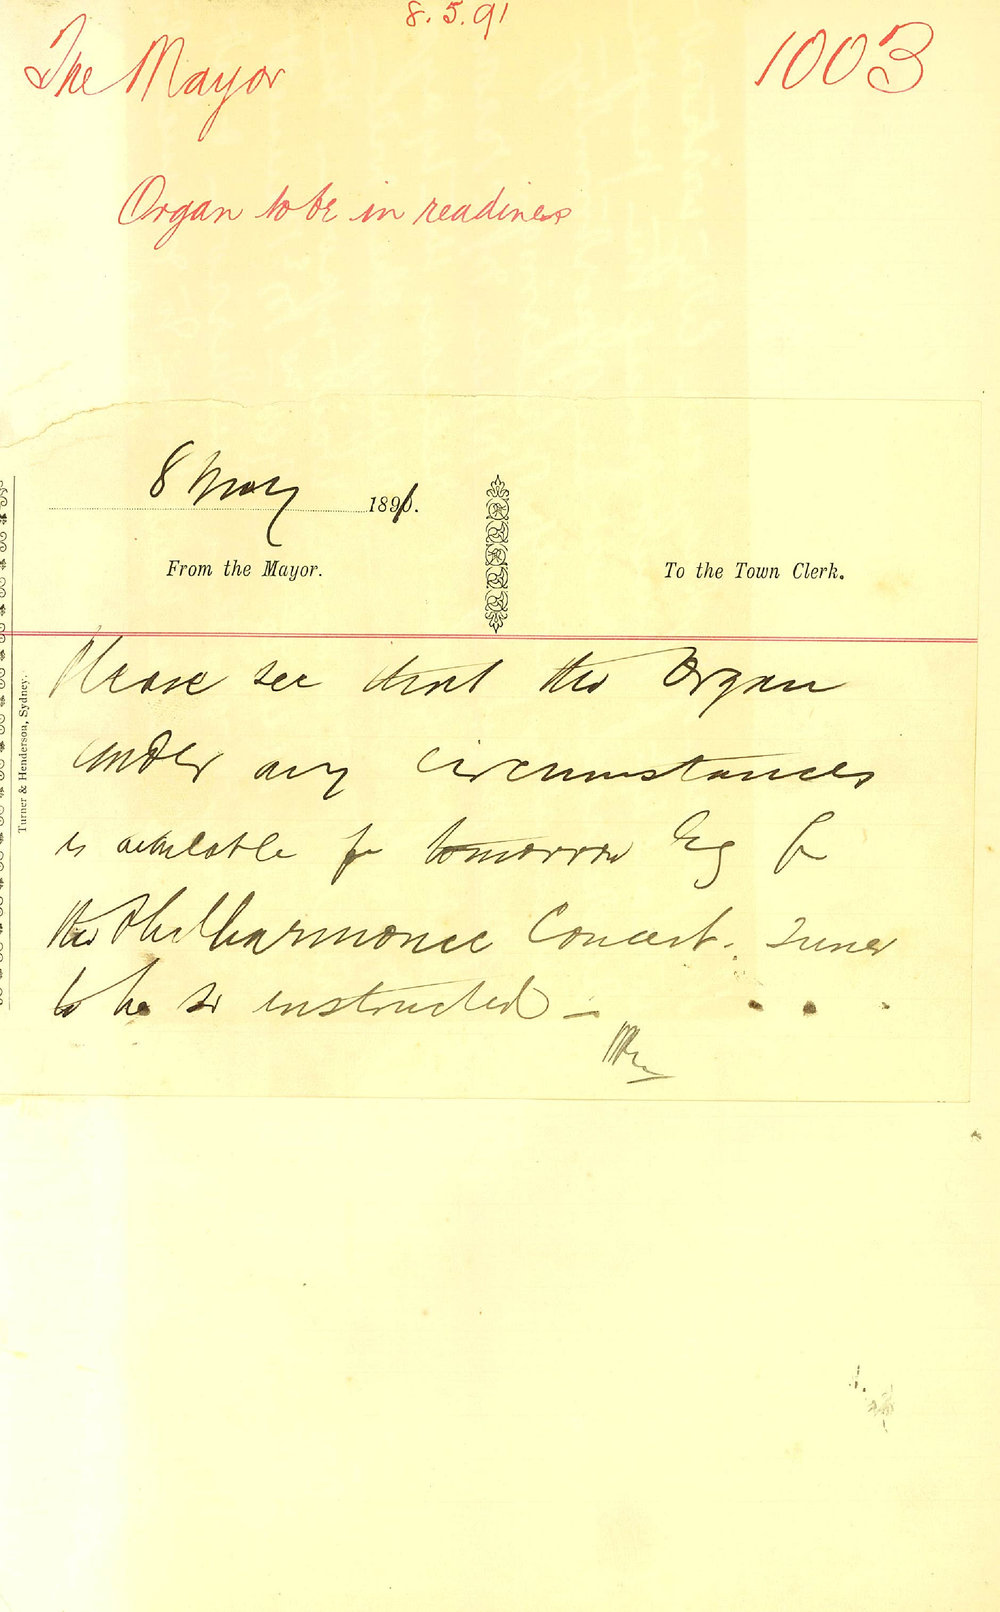 8.5.91
The Mayor
1003
Organ to be in readiness
8 May 1891.
From the Mayor.
To the Town Clerk.
Please see that the Organ
under any circumstances
is available for tomorrow Evg for
the Philharmonic Concert. Tuner
to be so instructed —
Turner & Henderson, Sydney.